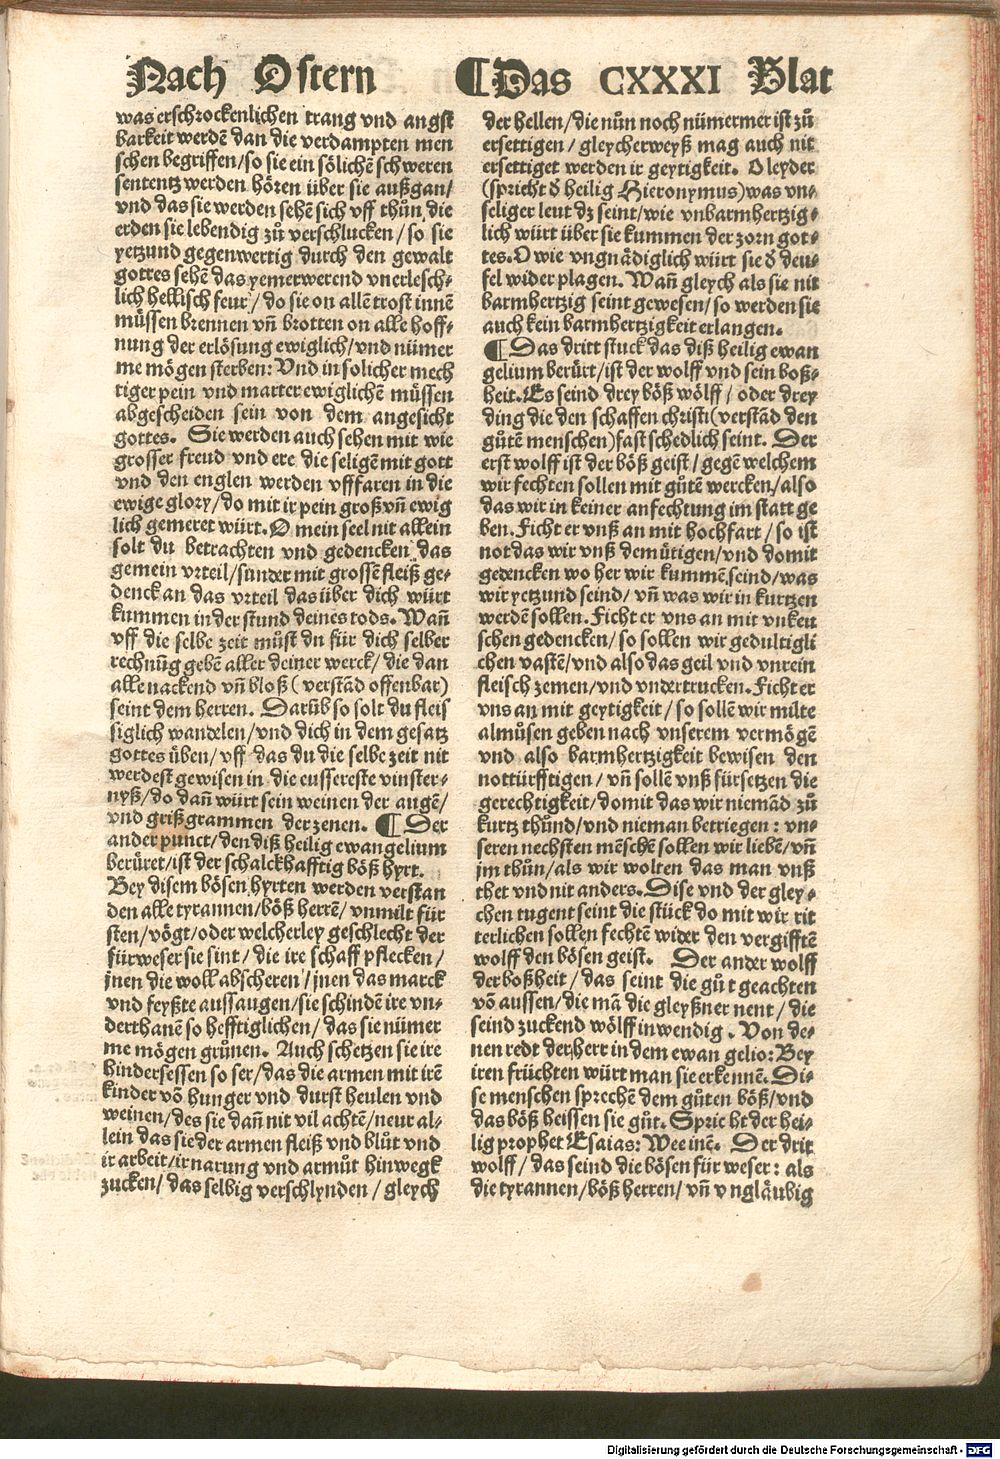 Nach Ostern ¶Das CXXXI Blat
was erschrockenlichen trang vnd angst
barkeit werdē dan die verdampten men
schen begriffen/so sie ein sölichē schweren
sententz werden hören über sie außgan/
vnd das sie werden sehē sich vff thůn die
erden sie lebendig zů verschlucken/so sie
yetzund gegenwertig durch den gewalt
gottes sehē das yemerwerend vnerlesch-
lich hellisch feur/do sie on allē trost innē
müssen brennen vñ brotten on alle hoff-
nung der erlösung ewiglich/vnd nümer
me mögen sterben: Vnd in solicher mech
tiger pein vnd matter ewiglichen müssen
abgescheiden sein von dem angesicht
gottes. Sie werden auch sehen mit wie
grosser freud vnd ere die seligē mit gott
vnd den englen werden vfffaren in die
ewige glory/do mit ir pein groß vñ ewig
lich gemeret würt. O mein seel nit allein
solt du betrachten vnd gedencken das
gemein vrteil/sunder mit grossē fleiß ge-
denck an das vrteil das über dich würt
kummen in der stund deines tods. Wañ
vff die selbe zeit můst du für dich selber
rechnūg gebē aller deiner werck/die dan
alle nackend vñ bloß (verstād offenbar)
seint dem herren. Darūb so solt du fleis
siglich wandelen/vnd dich in dem gesatz
gottes üben/vff das du die selbe zeit nit
werdest gewisen in die eussereste vinster-
nyß/do dañ würt sein weinen der augē/
vnd grißgrammen der zenen. ¶ Der
ander punct/den diß heilig ewangelium
berüret/ist der schalckhafftig böß hyrt.
Bey disem bösen hyrten werden verstan
den alle tyrannen/böß herrē/vnmilt für
sten/vögt/oder welcherley geschlecht der
fürweser sie sint/die ire schaff pflecken/
jnen die woll abscheren/jnen das marck
vnd feyßte aussaugen/sie schindē ire vn-
derthanē so hefftiglichen/das sie nümer
me mögen grůnen. Auch schetzen sie ire
hindersessen so ser/das die armen mit irē
kinder vō hunger vnd durst heulen vnd
weinen/des sie dañ nit vil achtē/neur al-
lein das sie der armen fleiß vnd blůt vnd
ir arbeit/ir narung vnd armůt hinwegk
zucken/das selbig verschlynden/gleych
der hellen/die nůn noch nümermer ist zů
ersettigen/gleycherweyß mag auch nit
ersettiget werden ir geytigkeit. O leyder
(spricht d̕ heilig Hieronymus) was vn-
seliger leut dz seint/wie vnbarmhertzig-
lich würt über sie kummen der zorn got-
tes. O wie vngnädiglich würt sie d̕ deu-
fel wider plagen. Wañ gleych als sie nit
barmhertzig seint gewesen/so werden sie
auch kein barmhertzigkeit erlangen.
¶ Das dritt stuck das diß heilig ewan
gelium berürt/ist der wolff vnd sein boß-
heit. Es seind drey böß wölff/oder drey
ding die den schaffen christi(verstād den
gůtē menschen)fast schedlich seint. Der
erst wolff ist der böß geist/gegē welchem
wir fechten sollen mit gůtē wercken/also
das wir in keiner anfechtung im statt ge
ben. Ficht er vnß an mit hochfart/so ist
not das wir vnß demütigen/vnd domit
gedencken wo her wir kummē seind/was
wir yetzund seind/vñ was wir in kurtzen
werdē sollen. Ficht er vns an mit vnkeu
schen gedencken/so sollen wir gedultigli
chen vastē/vnd also das geil vnd vnrein
fleisch zemen/vnd vndertrucken. Ficht er
vns an mit geytigkeit/so sollē wir milte
almůsen geben nach vnserem vermögē
vnd also barmhertzigkeit bewisen den
nottürfftigen/vñ sollē vnß fürsetzen die
gerechtigkeit/domit das wir niemād zů
kurtz thůnd/vnd nieman betriegen: vn-
seren nechsten mēschē sollen wir liebē/vñ
jm thůn/als wir wolten das man vnß
thet vnd nit anders. Dise vnd der gley-
chen tugent seint die stück do mit wir rit
terlichen sollen fechtē wider den vergifftē
wolff den bösen geist. Der ander wolff
der boßheit/das seint die gůt geachten
vō aussen/die mā die gleyßner nent/die
seind zuckend wölff inwendig. Von de-
nen redt der herr in dem ewangelio: Bey
iren früchten würt man sie erkennē. Di-
se menschen sprechē dem gůten böß/vnd
das böß heissen sie gůt. Spricht der hei-
lig prophet Esaias: Wee inē. Der drit
wolff/das seind die bösen fürweser: als
die tyrannen/böß herren/vñ vngläubig
Digitalisierung gefördert durch die Deutsche Forschungsgemeinschaft - DFG